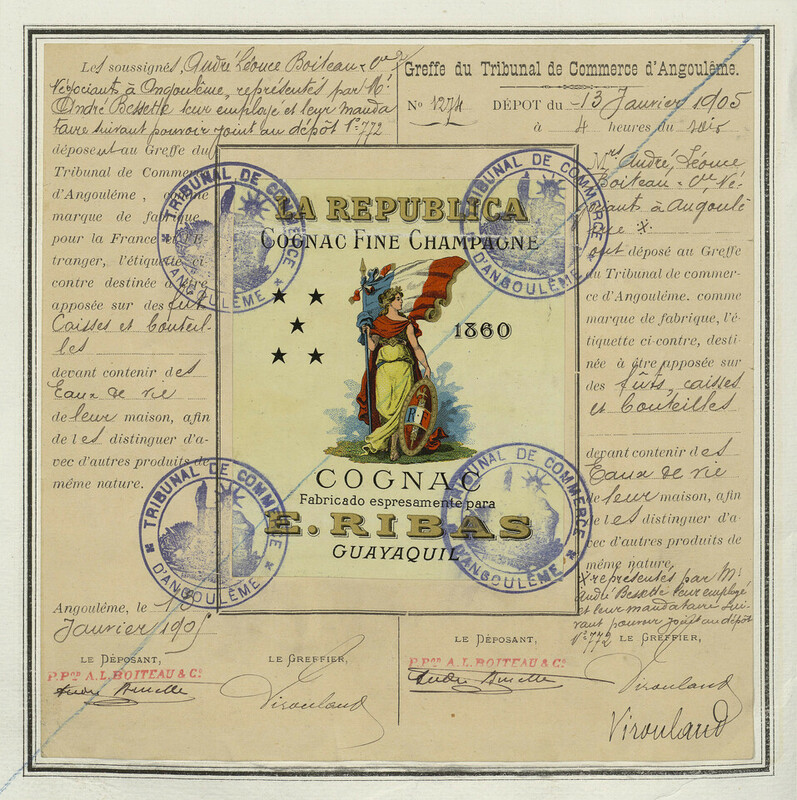 Les soussignés, André Léonce Boiteau & Cie
Négociants à Angoulême, représentés par Mr
André Bessette leur employé et leur manda
taire suivant pouvoir joint au dépôt N° 772
déposent au Greffe du
Tribunal de Commerce
d'Angoulême, comme
marque de fabrique
pour la France et l'É-
tranger, l'étiquette ci-
contre destinée à être
apposée sur des fûts
Caisses et bouteil-
les
devant contenir des
Eaux de vie
de leur maison, afin
de les distinguer d'a-
vec d'autres produits de
même nature.
Angoulême, le 13
Janvier 1905
LE DÉPOSANT,
P.Pon A.L.BOITEAU & Co
André Bessette
LE GREFFIER,
Virouland
LA REPUBLICA
COGNAC FINE CHAMPAGNE
1860
R F
COGNAC
Fabricado espresamente para
E. RIBAS
GUAYAQUIL
TRIBUNAL DE COMMERCE
D'ANGOULÊME
TRIBUNAL DE COMMERCE
D'ANGOULÊME
TRIBUNAL DE COMMERCE
D'ANGOULÊME
TRIBUNAL DE COMMERCE
D'ANGOULÊME
Greffe du Tribunal de Commerce d'Angoulême.
No 1274 DÉPOT du 13 Janvier 1905
à 4 heures du soir
Mrs André, Léonce
Boiteau & Cie, Né-
gociants à Angoulê
me x.
ont déposé au Greffe
du Tribunal de commer-
ce d'Angoulême. comme
marque de fabrique, l'é-
tiquette ci-contre, desti-
née à être apposée sur
des fûts, caisses
et bouteilles
devant contenir des
Eaux de vie
de leur maison, afin
de les distinguer d'a-
vec d'autres produits de
même nature.
x représentés par Mr
André Bessette leur employé
et leur mandataire sui-
vant pouvoir joint au dépôt
N° 772
LE GREFFIER,
LE DÉPOSANT,
P.Pon A.L.BOITEAU & Co
André Bessette
Virouland
Virouland